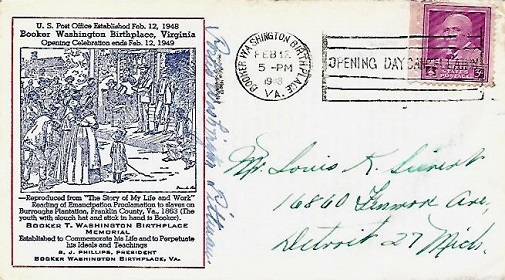 U. S. Post Office Established Feb. 12, 1948
Booker Washington Birthplace, Virginia
Opening Celebration ends Feb. 12, 1949
—Reproduced from "The Story of My Life and Work"
Reading of Emancipation Proclamation to slaves on
Burroughs Plantation, Franklin County, Va., 1863 (The
youth with slouch hat and stick in hand is Booker).
BOOKER T. WASHINGTON BIRTHPLACE
MEMORIAL
Established to Commemorate his Life and to Perpetuate
his Ideals and Teachings
S. J. PHILLIPS, PRESIDENT
BOOKER WASHINGTON BIRTHPLACE, VA.
Portia Washington Pittman
BOOKER WASHINGTON BIRTHPLACE
FEB 12
5 - PM
1948
VA.
OPENING DAY
Mr. Louis K.
16860 Lenmore Ave,
Detroit 27 Mich.